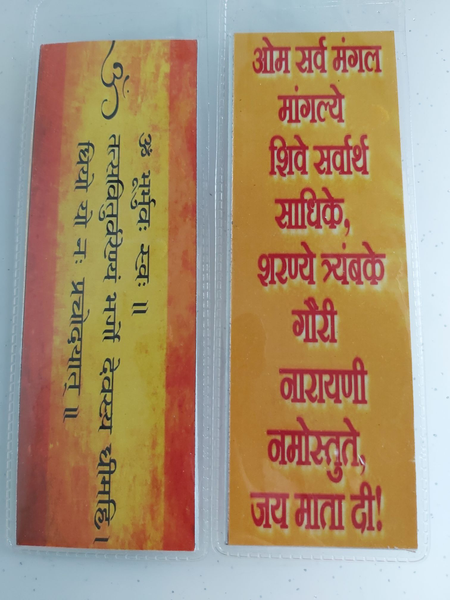 ॐ
ॐ भूर्भुवः स्वः ॥
तत्सवितुर्वरेण्यं भर्गो देवस्य धीमहि ।
धियो यो नः प्रचोदयात् ॥
ओम सर्व मंगल
मांगल्ये
शिवे सर्वार्थ
साधिके,
शरण्ये त्र्यंबके
गौरी
नारायणी
नमोस्तुते,
जय माता दी!